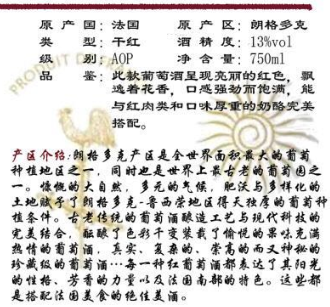 原产国：法国 原产区：朗格多克
类型：干红 酒精度：13%vol
级别：AOP 净含量：750ml
品鉴：此款葡萄酒呈现亮丽的红色，飘
逸着花香，口感强劲而饱满，能
与红肉类和口味厚重的奶酪完美
搭配。
PRODUIT DE
产区介绍：朗格多克产区是全世界面积最大的葡萄
种植地区之一，同时也是世界上最古老的葡萄园之
一。慷慨的大自然，多元的气候，肥沃与多样化的
土地赋予了朗格多克-鲁西荣地区得天独厚的葡萄种
植条件。古老传统的葡萄酒酿造工艺与现代科技的
完美结合，酝酿了色彩千变装载了愉悦的果味充满
热情的葡萄酒，真实、复杂的、崇高的而又神秘的
珍藏级的葡萄酒…每一种红葡萄酒都表达了其阳光
的性格、芳香的力量以及法国南部的特色。这些都
是搭配法国美食的绝佳美酒。